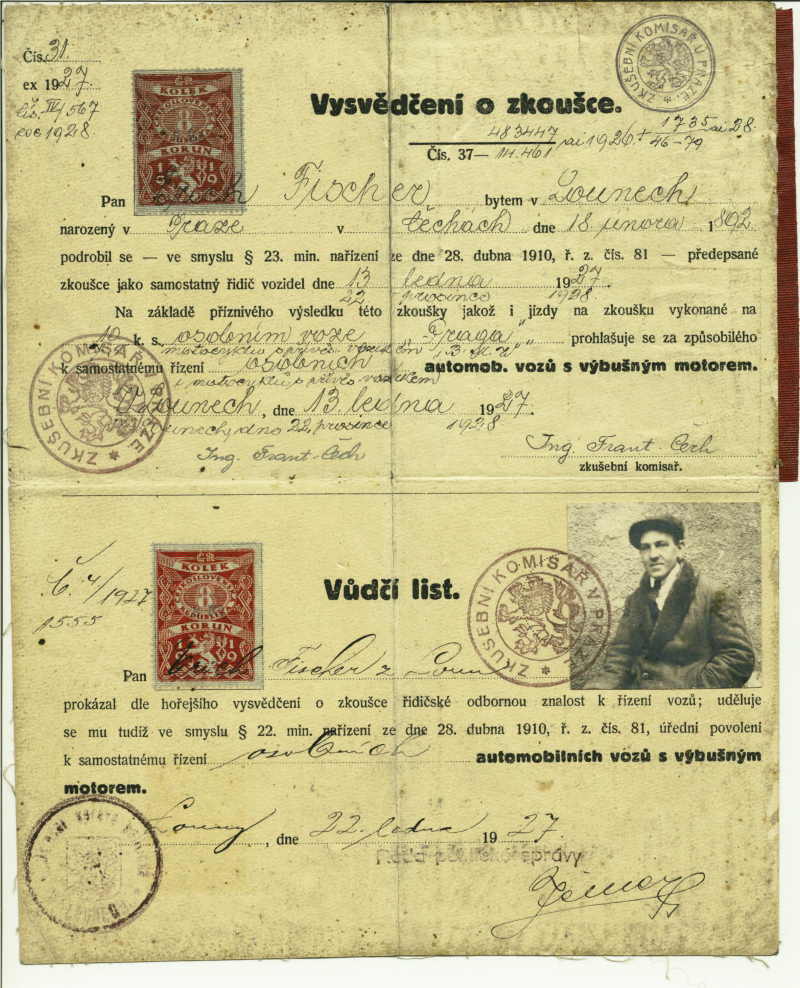 Čís. 31.
ex 1927.
čís. IV 4567
roc 1928
ZKUŠEBNÍ KOMISAŘ V PRAZE *
ČR
KOLEK
8
KORUN
Vysvědčení o zkoušce.
483447 ai 1926 + 1735 ai 28.
Čís. 37— 14.461 46-79
Pan Erich Fischer bytem v Lounech
narozený v Praze v Čechách dne 18 února 1892
podrobil se — ve smyslu § 23. min. nařízení ze dne 28. dubna 1910, ř. z. čís. 81 — předepsané
zkoušce jako samostatný řidič vozidel dne 13 ledna 1927.
22 prosince 1928
Na základě příznivého výsledku této zkoušky jakož i jízdy na zkoušku vykonané na
10 k. s., osobním voze „Praga" prohlašuje se za způsobilého
motocyklu s přívěs. vozíkem
k samostatnému řízení osobních automob. vozů s výbušným motorem.
i motocyklů s přívěs vozíkem
V Lounech, dne 13. ledna 1927.
Lounech, dne 22. prosince 1928
ZKUŠEBNÍ KOMISAŘ V PRAZE *
Ing. Frant. Čech
Ing. Frant. Čech
zkušební komisař.
Č. 4/1927
1555
ČR
KOLEK
8
KORUN
Vůdčí list.
ZKUŠEBNÍ KOMISAŘ V PRAZE *
Pan Erich Fischer z Loun
prokázal dle hořejšího vysvědčení o zkoušce řidičské odbornou znalost k řízení vozů; uděluje
se mu tudíž ve smyslu § 22. min. nařízení ze dne 28. dubna 1910, ř. z. čís. 81, úřední povolení
k samostatnému řízení osobních automobilních vozů s výbušným
motorem.
Louny, dne 22. ledna 1927.
správy